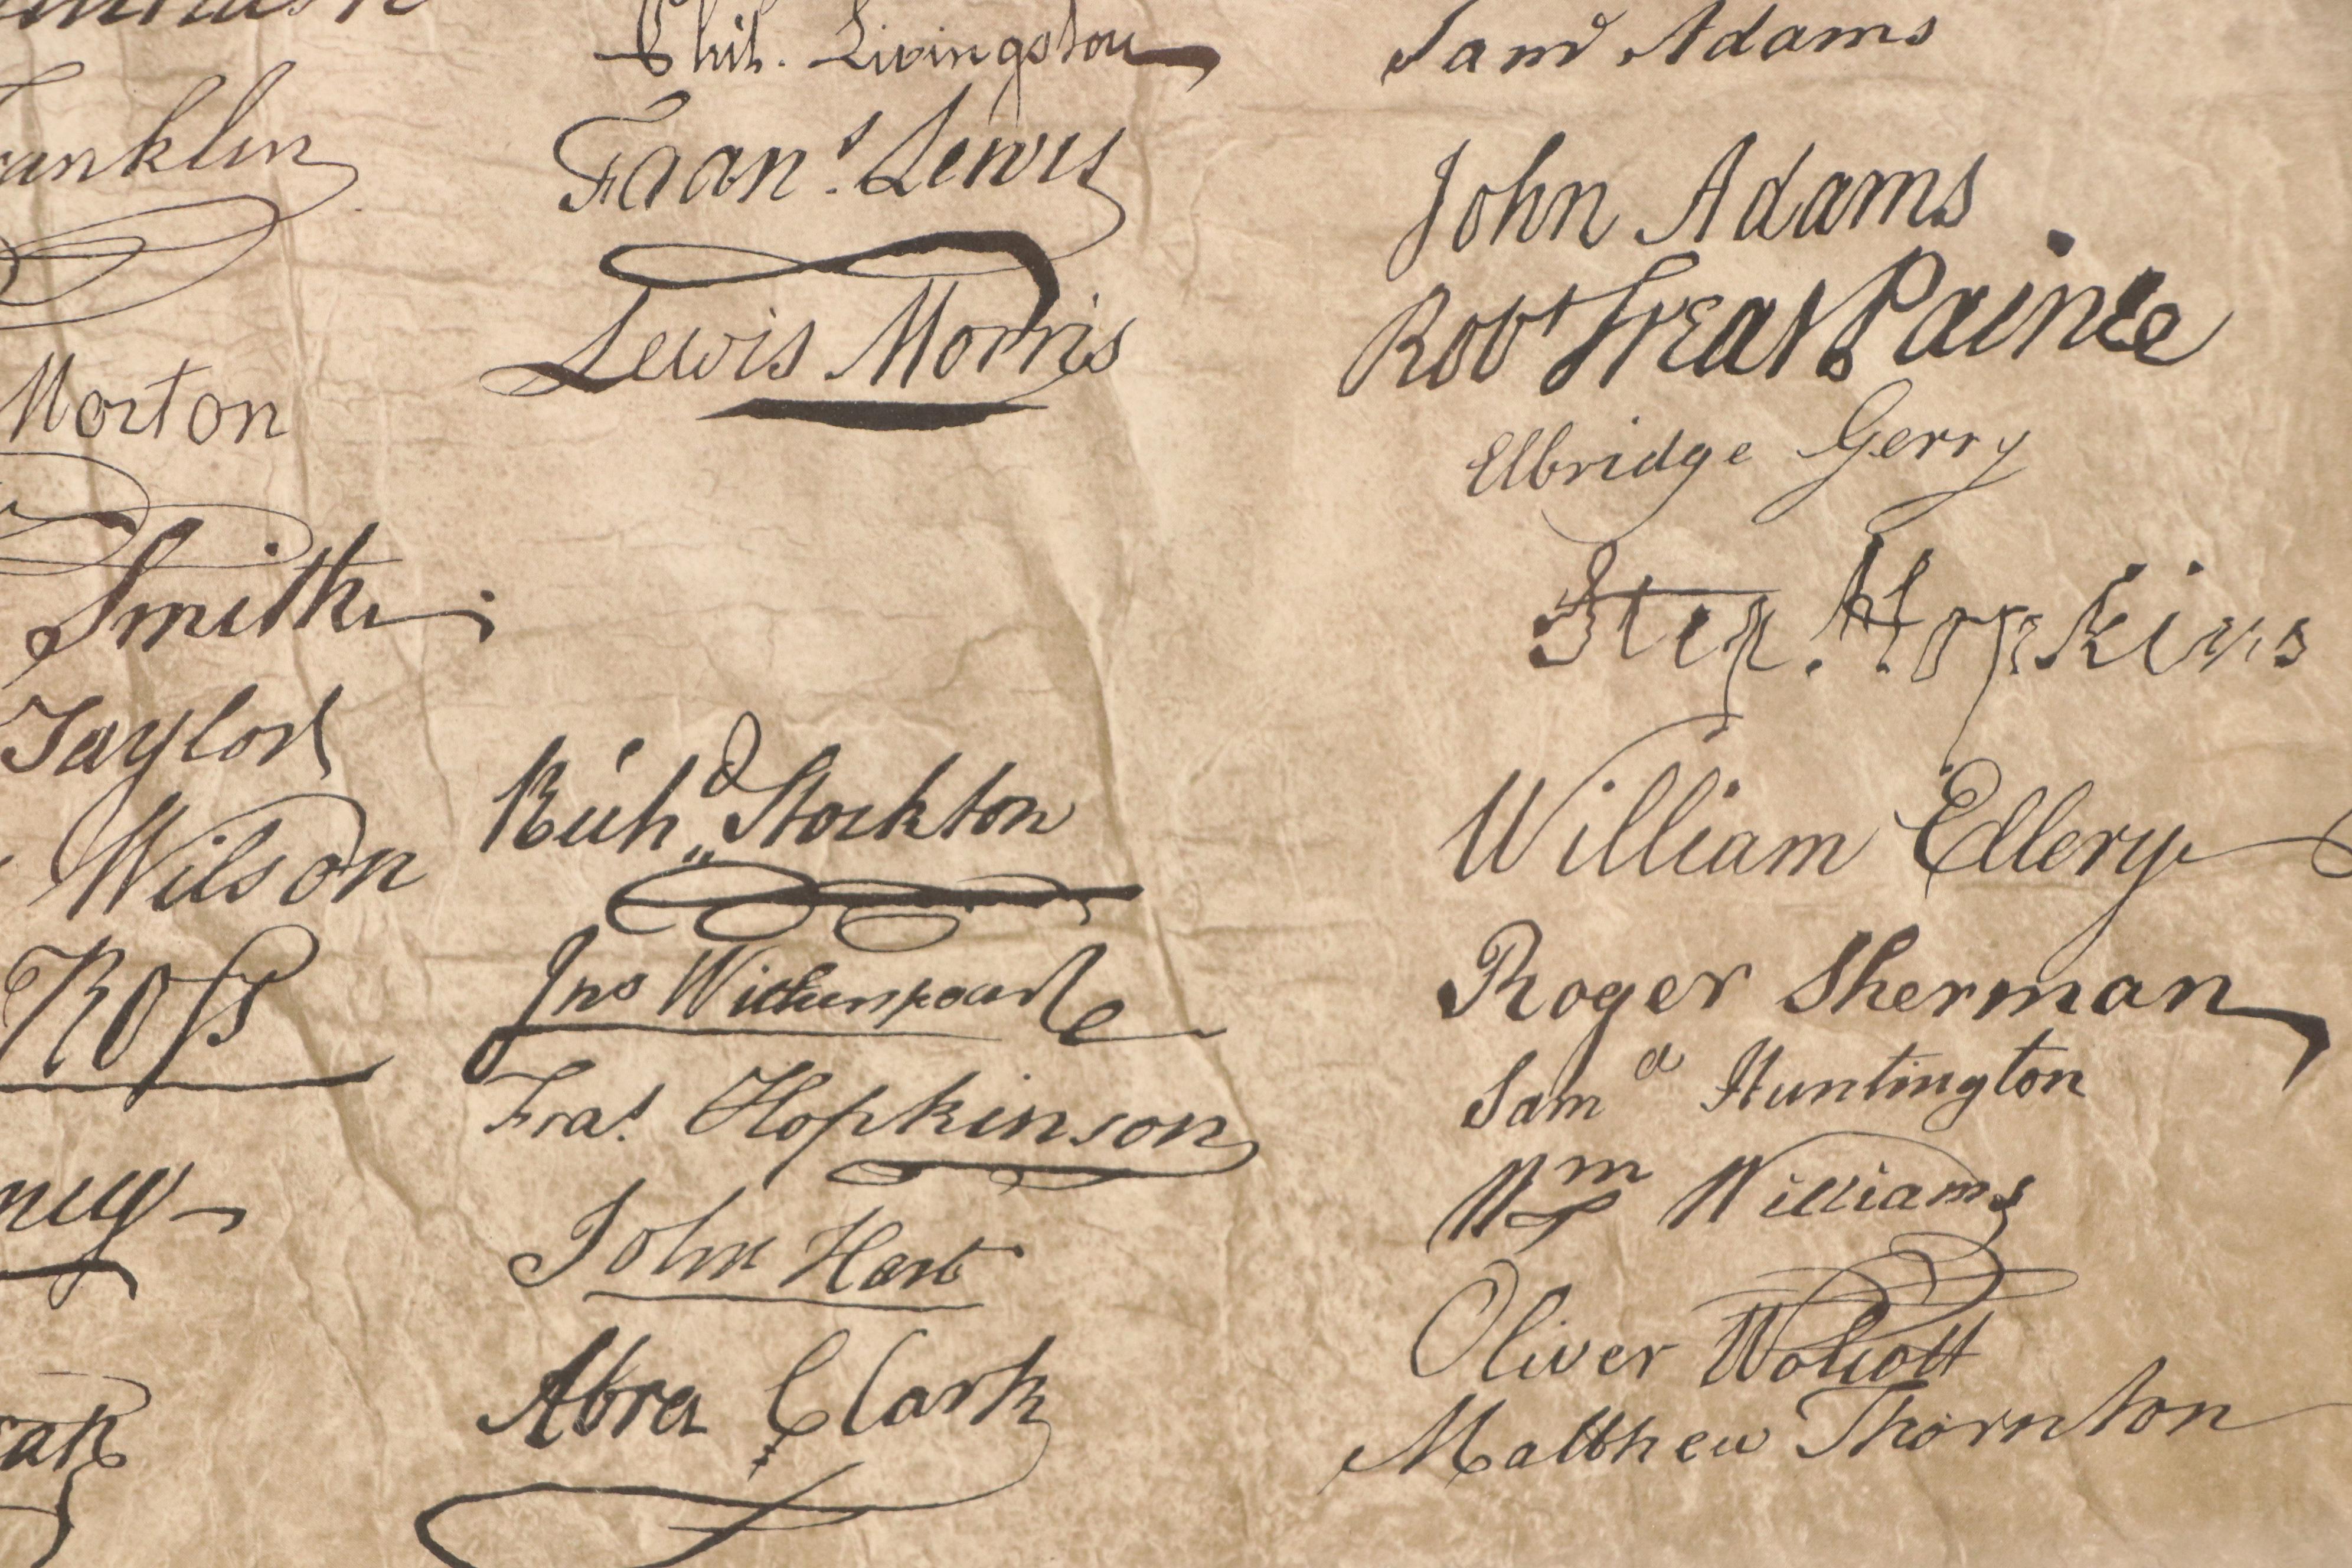 Franklin
Morton
Smith
Taylor
Wilson
Ross
Phil. Livingston
Frans. Lewis
Lewis Morris
Richd. Stockton
Jno Witherspoon
Fras. Hopkinson
John Hart
Abra Clark
Saml Adams
John Adams
Robt Treat Paine
Elbridge Gerry
Step. Hopkins
William Ellery
Roger Sherman
Saml Huntington
Wm Williams
Oliver Wolcott
Matthew Thornton